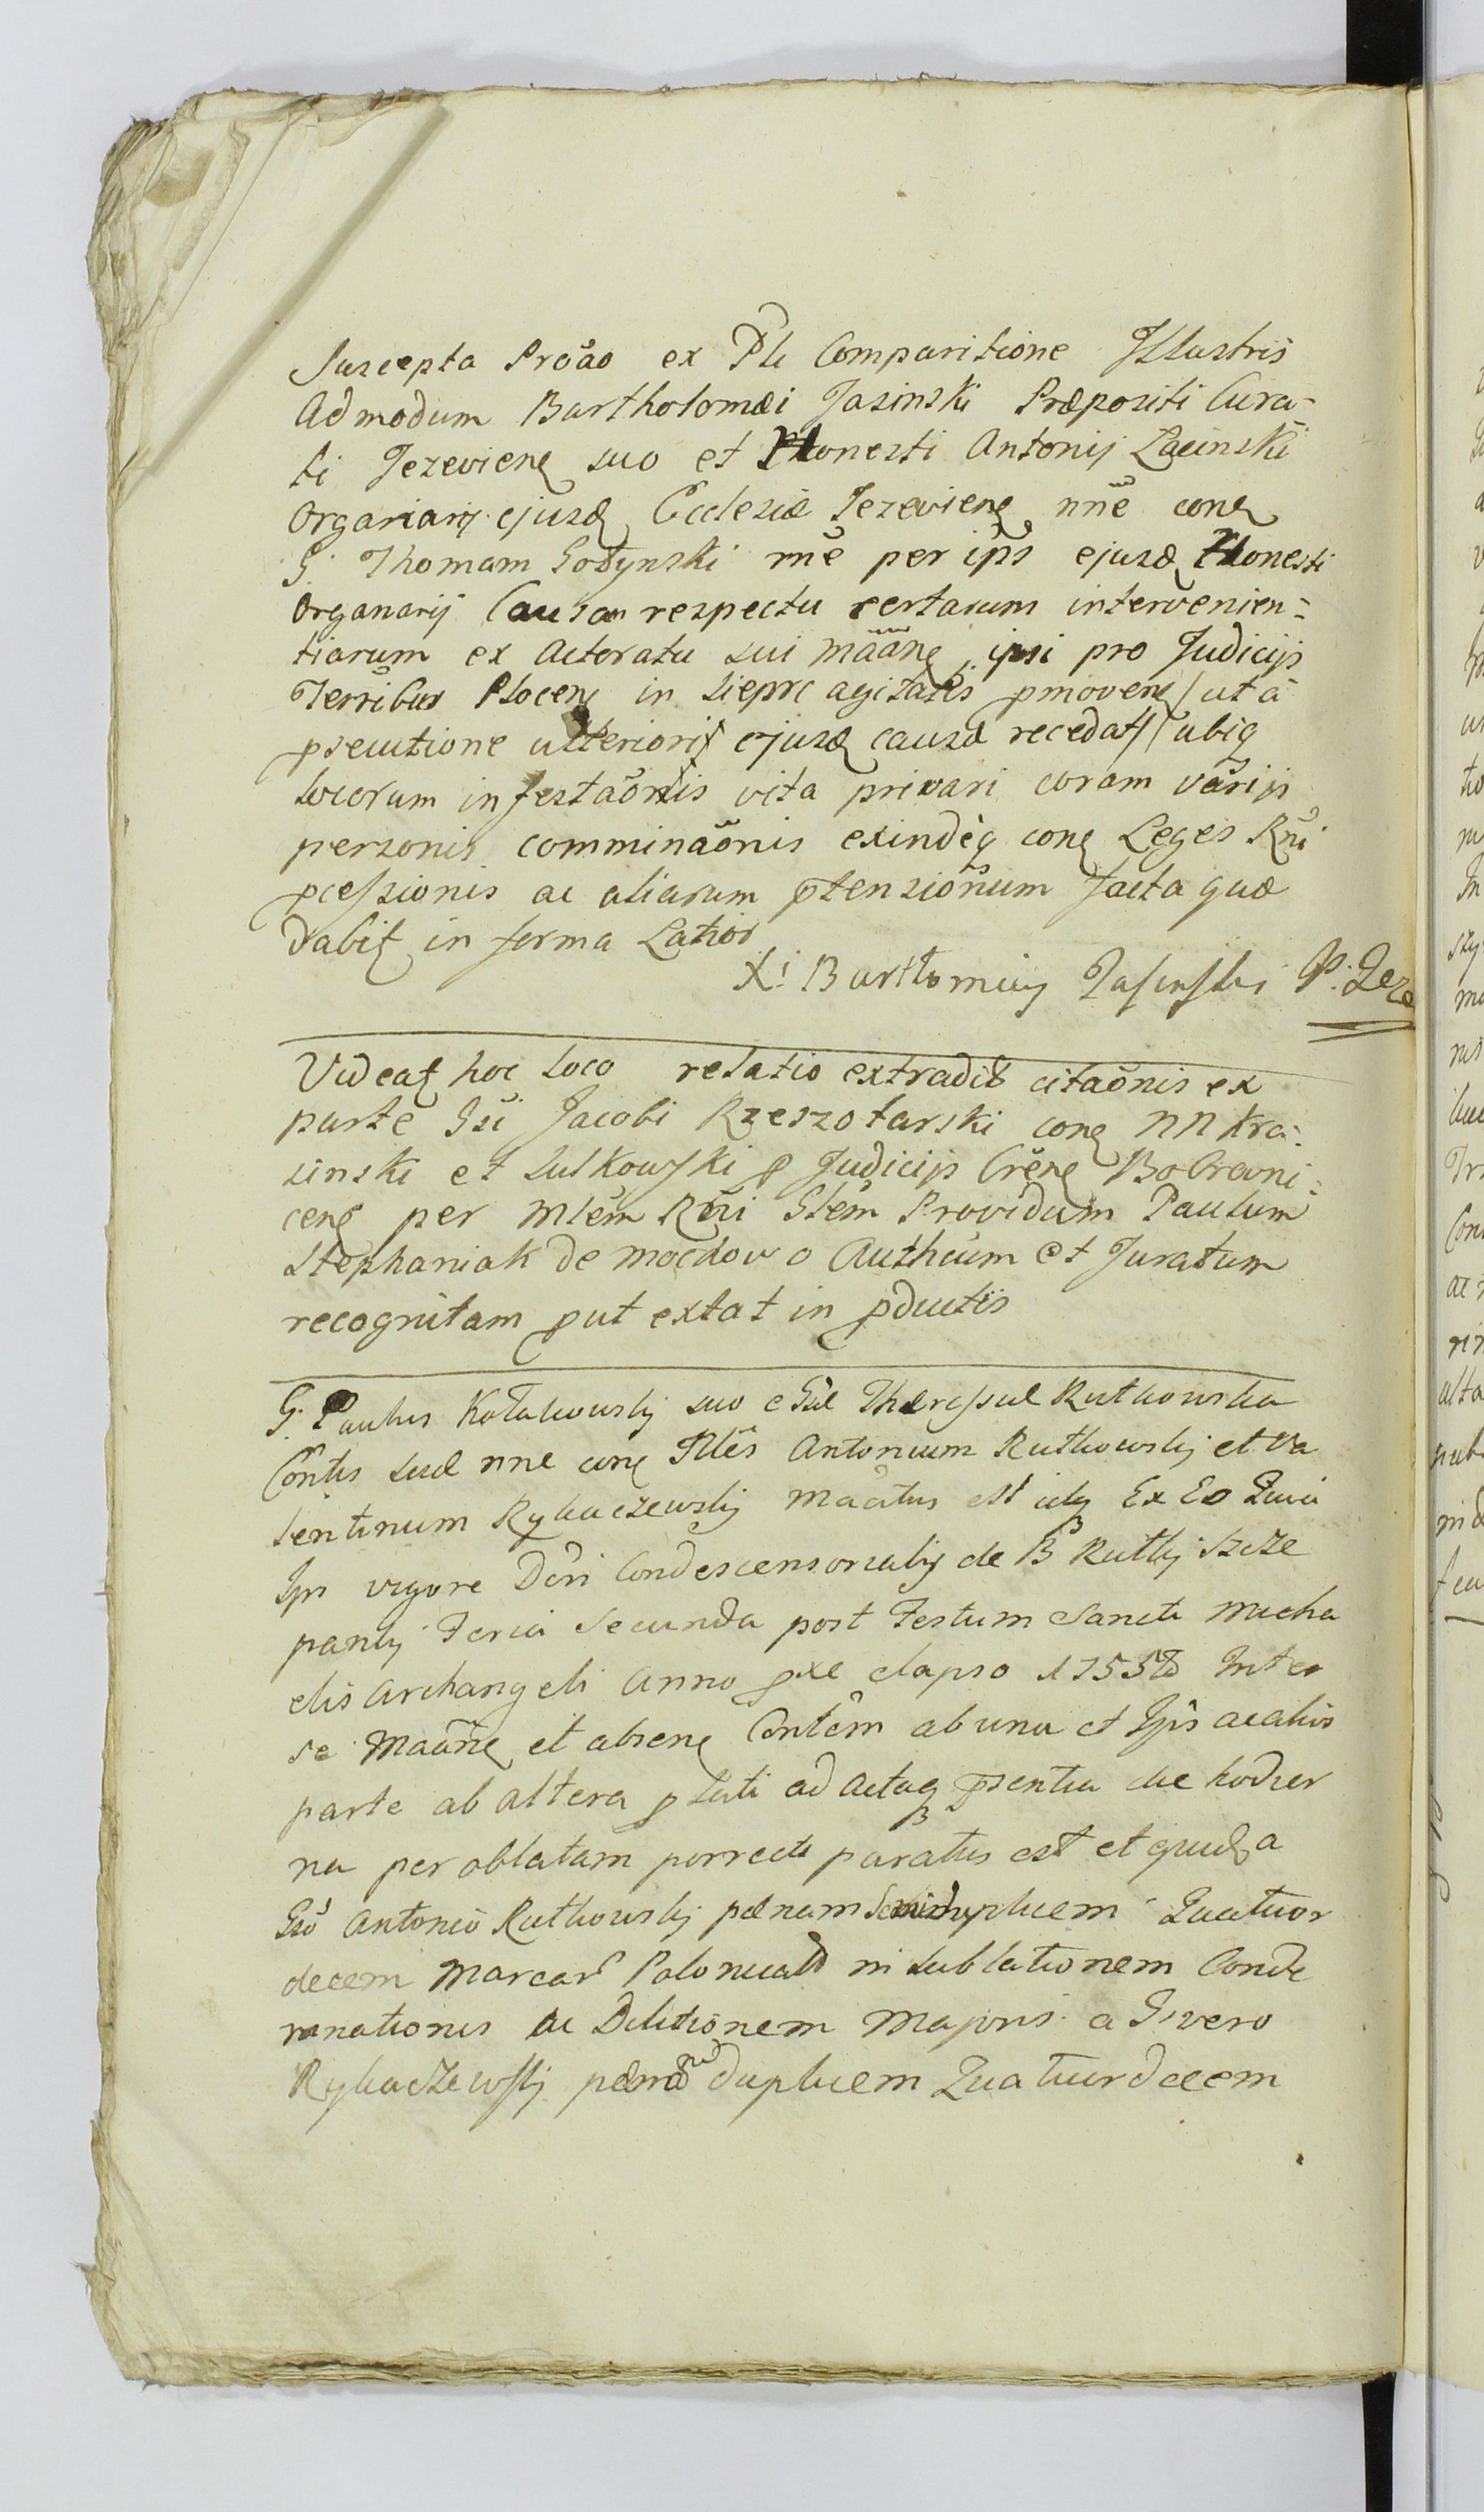 Suscepta Prõao ex Pli Comparitione Illustris
Admodum Bartholomæi Jasinski Præpositi Cura-
ti Jezeviene suo et Honesti Antonij Łącinski
Organarij ejusd Ecclesiæ Jezeviene nñe cone
G. Thomam Gotynski mẽ per ips ejusd Honesti
Organarij Causam respectu certarum intervenien=
tiarum ex Actoratu sui Mããne ipsi pro Judicijs
Terribus Plocene in Sieprc agitatis pmovene / ut à
psecutione ulterioris ejusd causæ recedat / ubiq
locorum infestaõnis vita privari coram varijs
personis comminaõnis exindèq cone Leges Rñi
pcessionis ac aliarum ptensionum facta quæ
dabit in forma Latior
X: Bartłomiey Jasinski P. Jeze
Videat hoc loco relatio extradit citaõnis ex
parte Gsi Jacobi Rzeszotarski cone NN Kra-
sinski et Sulkowski p Judicijs Crẽne Bobrovni=
cene per Mlẽm Rñi Glẽm Providum Paulum
Stephaniak de Mochowo Autheum et Juratum
recognitam put extat in pductis
G. Paulus Kołakowsky suo e Gsæ Theressæ Rutkowska
Cõntis suæ nne cone Antonium Rutkowsky et Va
lentinum Rykaczewsky Maãtus est Ex Eo Quia
Ips vigore Dcri Condescensorialis de B Rutky Szcze
panky Feria Secunda post Festum Sancti Micha
elis Archangeli Anno pxe elapso 1755to Inter
se Maãne et absene Contẽm ab una et Ips ac alios
parte ab altera plati ad Actaq psentia die hodier
na per oblatam porrecti paratus est et quid a
Gso Antonio Rutkowsky pænam Quatuor
decem Marcar Polonical in sublationem Conde
mnationis ac Deletionem Majoris a G vero
Rykaczewsky pænam duplicem Quatuordecem